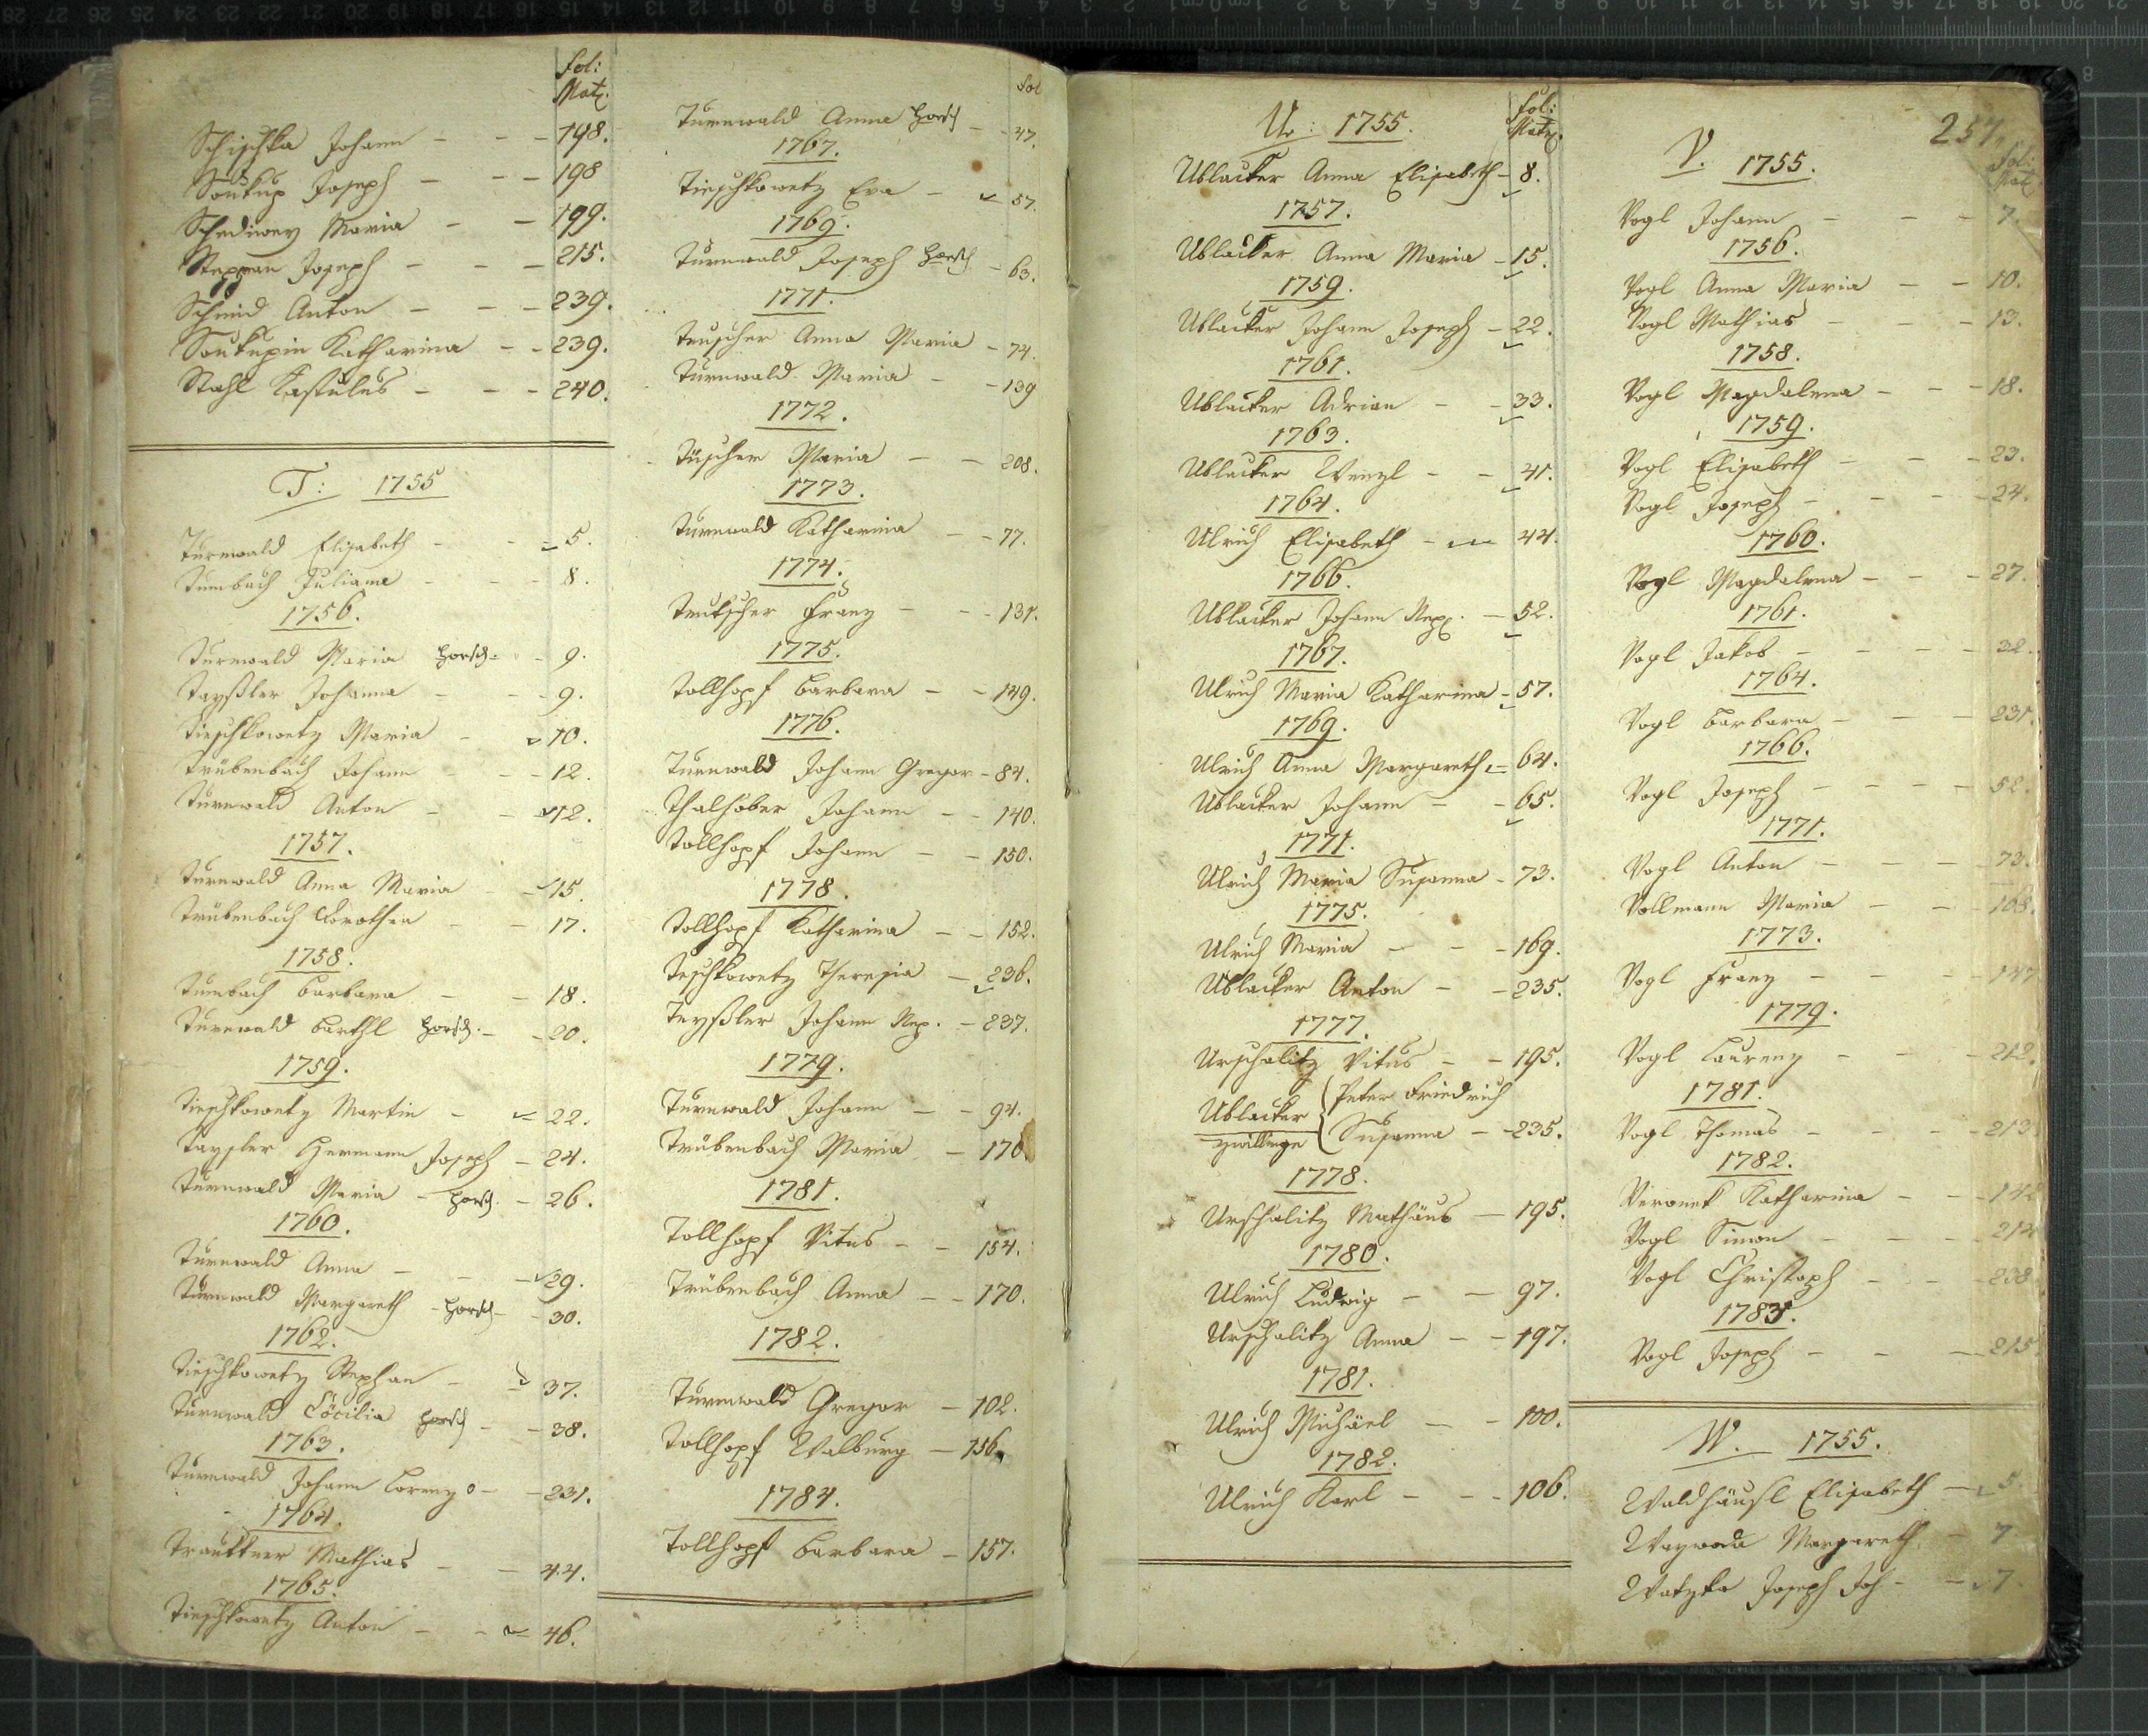 Fol:
Matz.
Schischka Johann - - - 198.
Soukup Joseph - - - 198
Schediwey Maria - - 199.
Stepman Joseph - - - 215.
Schmid Anton - - - 239.
Soukupin Katharina - - 239.
Stahl Kastulus - - - 240.
T: 1755
Turnwald Elisabeth - - 5.
Tumbach Juliana - - - 8.
1756.
Turnwald Maria Horsch - - 9.
Tayßler Johanna - - - 9.
Tieschkowetz Maria - 10.
Trübenbach Johann - - - 12.
Turnwald Anton - - 12.
1757.
Turnwald Anna Maria - - 15.
Trübenbach Dorothea - - 17.
1758.
Tumbach Barbara - - 18.
Turnwald Barthl Horsch. - - 20.
1759.
Tieschkowetz Martin - 22.
Taysler Hermann Joseph - 24.
Turnwald Maria - Horsch. - 26.
1760.
Turnwald Anna - - - 29.
Turnwald Margareth - Horsch - 30.
1762.
Tieschkowetz Stephan - - 37.
Turnwald Cöcilia Horsch - - 38.
1763.
Turnwald Johann Lorenz - - 231.
1764.
Trauttner Mathias - - 44.
1765.
Tieschkowetz Anton - - 46.
Fol
Turnwald Anna Horsch - - 47.
1767.
Tieschkowetz Eva - 57.
1769.
Turnwald Joseph Horsch - 63.
1771.
Teuscher Anna Maria - 74.
Turnwald Maria - - 139
1772.
Tuscher Maria - - 208.
1773.
Turnwald Katharina - - 77.
1774.
Teutscher Franz - - - 131.
1775.
Tollhopf Barbara - - 149.
1776.
Turnwald Johann Gregor - 84.
Thalhober Johann - - 140.
Tollhopf Johann - - 150.
1778.
Tollhopf Katharina - - 152.
Teschkowetz Theresia - 236.
Teyßler Johann Nep. - 237.
1779.
Turnwald Johann - - 94.
Trübenbach Maria - 170
1781.
Tollhopf Vitus - - 154.
Trübenbach Anna - - 170.
1782.
Turnwald Gregor - 102.
Tollhopf Walburg - 156.
1784.
Tollhopf Barbara - 157.
U: 1755.
Fol:
Matz.
Ublacker Anna Elisabeth - 8.
1757.
Ublacker Anna Maria - 15.
1759.
Ublacker Johann Joseph - 22.
1761.
Ublacker Adrian - - 33.
1763.
Ublacker Wenzl - - 41.
1764.
Ulrich Elisabeth - - 44.
1766.
Ublacker Johann Nep. - 52.
1767.
Ulrich Maria Katharina - 57.
1769.
Ulrich Anna Margareth - 64.
Ublacker Johann - - 65.
1771.
Ulrich Maria Susanna - 73.
1775.
Ulrich Maria - - - 169.
Ublacker Anton - - 235.
1777.
Urschalitz Vitus - - 195.
Ublacker { Peter Friedrich
Zwillinge { Susanna - - 235.
1778.
Urschalitz Mathäus - 195.
1780.
Ulrich Ludwig - - 97.
Urschalitz Anna - - 197.
1781.
Ulrich Michäel - - 100.
1782.
Ulrich Karl - - - 106.
257.
V. 1755.
Fol:
Matz
Vogl Johann - - - 7.
1756.
Vogl Anna Maria - - 10.
Vogl Mathias - - - 13.
1758.
Vogl Magdalena - - - 18.
1759.
Vogl Elisabeth - - - 23.
Vogl Joseph - - - - 24.
1760.
Vogl Magdalena - - - 27.
1761.
Vogl Jakob - - - - 32.
1764.
Vogl Barbara - - - 231.
1766.
Vogl Joseph - - - - 52.
1771.
Vogl Anton - - - - 73.
Vollmann Maria - - - 168.
1773.
Vogl Franz - - - - 147
1779.
Vogl Laurenz - - - 212.
1781.
Vogl Thomas - - - - 213.
1782.
Veronek Katharina - - - 142
Vogl Simon - - - - 214
Vogl Christoph - - - 238.
1783.
Vogl Joseph - - - 215
W. 1755.
Waldhäusl Elisabeth - 5.
Waywoda Margareth - 7.
Watzka Joseph Joh - - 7.